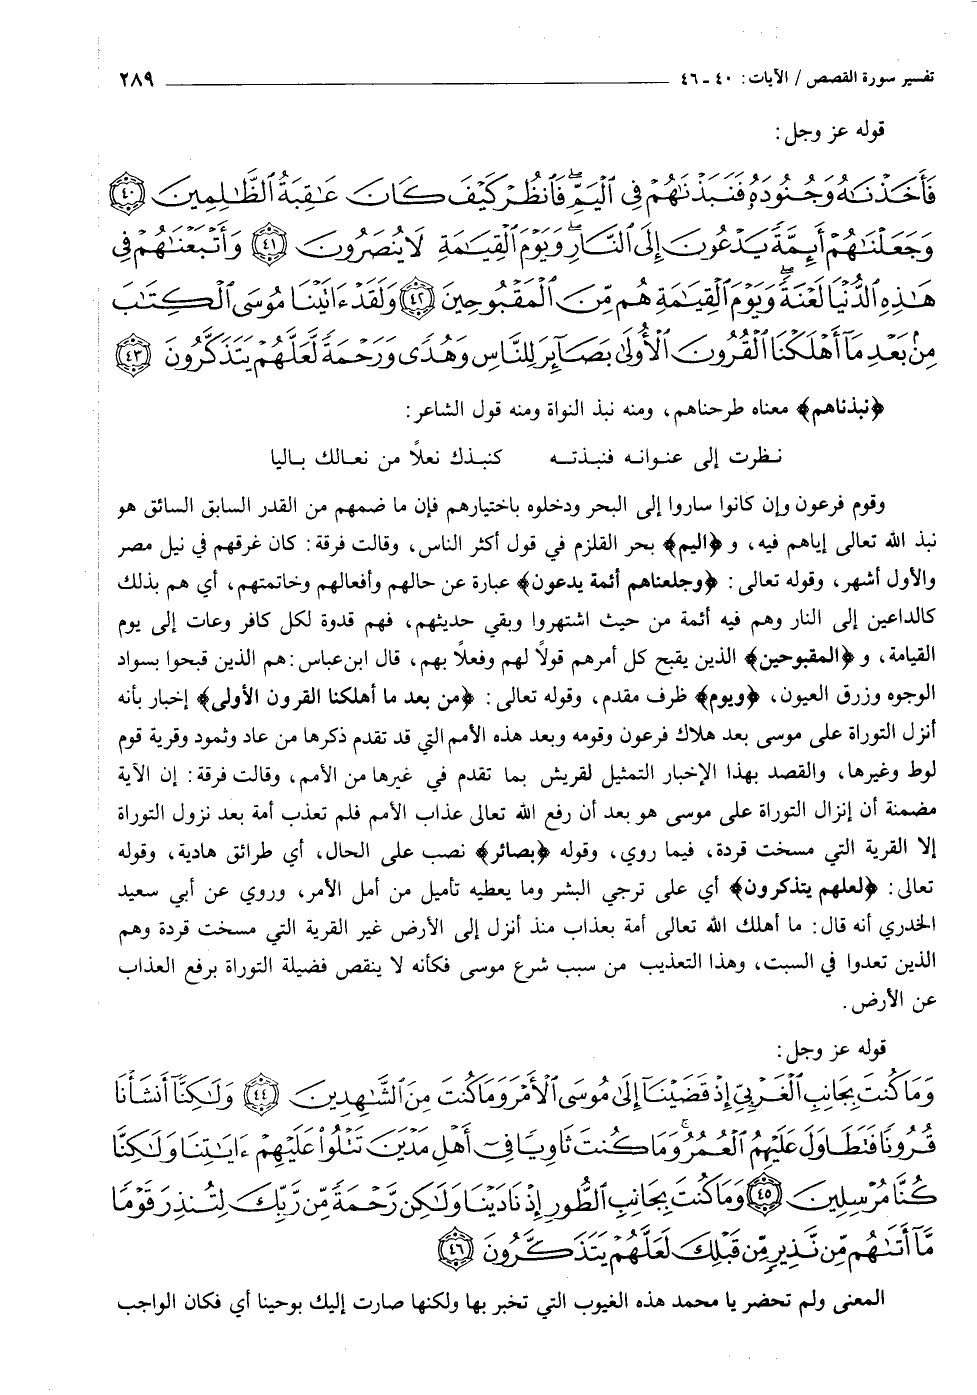 تفسير سورة القصص / الآيات: ٤٠ - ٤٦ ٢٨٩
قوله عز وجل:
فَأَخَذْنَٰهُ وَجُنُودَهُۥ فَنَبَذْنَٰهُمْ فِى ٱلْيَمِّ ۖ فَٱنظُرْ كَيْفَ كَانَ عَٰقِبَةُ ٱلظَّٰلِمِينَ ﴿٤٠﴾
وَجَعَلْنَٰهُمْ أَئِمَّةً يَدْعُونَ إِلَى ٱلنَّارِ ۖ وَيَوْمَ ٱلْقِيَٰمَةِ لَا يُنصَرُونَ ﴿٤١﴾ وَأَتْبَعْنَٰهُمْ فِى
هَٰذِهِ ٱلدُّنْيَا لَعْنَةً ۖ وَيَوْمَ ٱلْقِيَٰمَةِ هُم مِّنَ ٱلْمَقْبُوحِينَ ﴿٤٢﴾ وَلَقَدْ ءَاتَيْنَا مُوسَى ٱلْكِتَٰبَ
مِنۢ بَعْدِ مَآ أَهْلَكْنَا ٱلْقُرُونَ ٱلْأُولَىٰ بَصَآئِرَ لِلنَّاسِ وَهُدًى وَرَحْمَةً لَّعَلَّهُمْ يَتَذَكَّرُونَ ﴿٤٣﴾
﴿نبذناهم﴾ معناه طرحناهم، ومنه نبذ النواة ومنه قول الشاعر:
نظرت إلى عنوانه فنبذته كنبذك نعلاً من نعالك باليا
وقوم فرعون وإن كانوا ساروا إلى البحر ودخلوه باختيارهم فإن ما ضمهم من القدر السابق السائق هو
نبذ الله تعالى إياهم فيه، و ﴿اليم﴾ بحر القلزم في قول أكثر الناس، وقالت فرقة: كان غرقهم في نيل مصر
والأول أشهر، وقوله تعالى: ﴿وجلعناهم أئمة يدعون﴾ عبارة عن حالهم وأفعالهم وخاتمتهم، أي هم بذلك
كالداعين إلى النار وهم فيه أئمة من حيث اشتهروا وبقي حديثهم، فهم قدوة لكل كافر وعات إلى يوم
القيامة، و ﴿المقبوحين﴾ الذين يقبح كل أمرهم قولاً لهم وفعلاً بهم، قال ابن عباس: هم الذين قبحوا بسواد
الوجوه وزرق العيون، ﴿ويوم﴾ ظرف مقدم، وقوله تعالى: ﴿من بعد ما أهلكنا القرون الأولى﴾ إخبار بأنه
أنزل التوراة على موسى بعد هلاك فرعون وقومه وبعد هذه الأمم التي قد تقدم ذكرها من عاد وثمود وقرية قوم
لوط وغيرها، والقصد بهذا الإخبار التمثيل لقريش بما تقدم في غيرها من الأمم، وقالت فرقة: إن الآية
مضمنة أن إنزال التوراة على موسى هو بعد أن رفع الله تعالى عذاب الأمم فلم تعذب أمة بعد نزول التوراة
إلا القرية التي مسخت قردة، فيما روي، وقوله ﴿بصائر﴾ نصب على الحال، أي طرائق هادية، وقوله
تعالى: ﴿لعلهم يتذكرون﴾ أي على ترجي البشر وما يعطيه تأميل من أمل الأمر، وروي عن أبي سعيد
الخدري أنه قال: ما أهلك الله تعالى أمة بعذاب منذ أنزل إلى الأرض غير القرية التي مسخت قردة وهم
الذين تعدوا في السبت، وهذا التعذيب من سبب شرع موسى فكأنه لا ينقص فضيلة التوراة برفع العذاب
عن الأرض.
قوله عز وجل:
وَمَا كُنتَ بِجَانِبِ ٱلْغَرْبِىِّ إِذْ قَضَيْنَآ إِلَىٰ مُوسَى ٱلْأَمْرَ وَمَا كُنتَ مِنَ ٱلشَّٰهِدِينَ ﴿٤٤﴾ وَلَٰكِنَّآ أَنشَأْنَا
قُرُونًا فَتَطَاوَلَ عَلَيْهِمُ ٱلْعُمُرُ ۚ وَمَا كُنتَ ثَاوِيًا فِىٓ أَهْلِ مَدْيَنَ تَتْلُوا۟ عَلَيْهِمْ ءَايَٰتِنَا وَلَٰكِنَّا
كُنَّا مُرْسِلِينَ ﴿٤٥﴾ وَمَا كُنتَ بِجَانِبِ ٱلطُّورِ إِذْ نَادَيْنَا وَلَٰكِن رَّحْمَةً مِّن رَّبِّكَ لِتُنذِرَ قَوْمًا
مَّآ أَتَىٰهُم مِّن نَّذِيرٍ مِّن قَبْلِكَ لَعَلَّهُمْ يَتَذَكَّرُونَ ﴿٤٦﴾
المعنى ولم تحضر يا محمد هذه الغيوب التي تخبر بها ولكنها صارت إليك بوحينا أي فكان الواجب